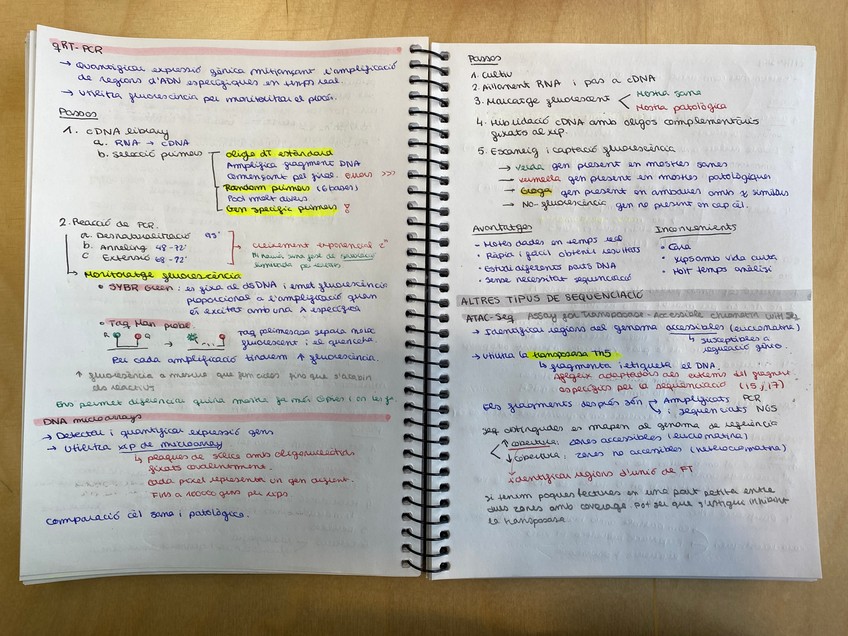 qRT-PCR
→ Quantificar expressió gènica mitjançant l'amplificació
de regions d'ADN específiques en temps real.
→ Utilitza fluorescència per monitoritzar el procés.
Passos
1. cDNA library
a. RNA → cDNA
b. Selecció primers
oligo dT estàndard
Amplifica fragment DNA
Començant pel final. Errors >>>
Random primers (6 bases)
Poden molt
Gen specific primers !
2. Reacció de PCR.
a. Desnaturalització 95°
b. Annealing 48-72°
c Extensió 68-72°
creixement exponencial 2ⁿ
Hi haurà una fase de
per reactius
→ Monitoratge fluorescència
• SYBR Green: es fixa al dsDNA i emet fluorescència
proporcional a l'amplificació quan
és excitat amb una λ específica
• Taq Man probe.
R Q
Taq polimerasa separa
fluorescent i el quencher.
Per cada amplificació tindrem ↑ fluorescència.
↑ fluorescència a mesura que fem cicles fins que s'acabin
els reactius
Ens permet diferenciar quina mostra té més còpies i on
DNA microarrays
→ Detectar i quantificar expressió gens
→ Utilitza xip de microarray
↳ plaques de sílice amb oligonucleòtids
fixats covalentment.
cada pixel representa un gen diferent.
Fins a 10000 gens per xips
Comparació cèl sana i patològica.
Passos
1. Cultiu
2. Aïllament RNA i pas a cDNA
3. Marcatge fluorescent < Mostra sana
Mostra patològica
4. Hibridació cDNA amb oligos complementaris
fixats al xip.
5. Escaneig i captació fluorescència
→ verda gen present en mostres sanes
→ vermella gen present en mostres patològiques
→ Groga gen present en ambdues amb y similars
→ No-fluorescència gen no present en cap cèl.
Avantatges
- Moltes dades en temps real
• Ràpid i fàcil obtenir resultats
• Estudi diferents parts DNA
- Sense necessitat seqüenciació
Inconvenients
• Cara
• xips amb vida curta
• Molt temps anàlisi
ALTRES TIPUS DE SEQUENCIACIÓ
ATAC-Seq Assay for Transposase-Accessible Chromatin with Seq
→ Identificar regions del genoma accessibles (eucromatina)
↳ susceptibles a
regulació gènica.
→ Utilitza la transposasa Tn5
↳ fragmenta i etiqueta el DNA.
Afegeix adaptadors als extrems del fragment
específics per la seqüenciació (i5, i7)
Els fragments després són → Amplificats PCR
→ i seqüenciats NGS
Seq obtingudes es mapen al genoma de referència
↑ Cobertura: zones accessibles (eucromatina)
↓ Cobertura: zones no accessibles (heterocromatina)
identificar regions d'unió de FT
Si tenim poques lectures en una part petita entre
dues zones amb coverage. Pot ser que
la transposasa